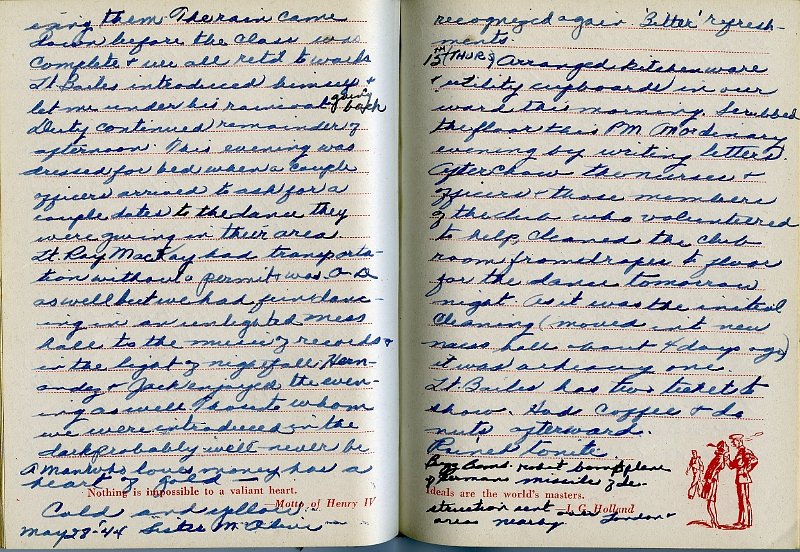 ising them. The rain came
down before the class was
complete & we all ret'd to wards
Lt Bailes introduced himself &
let me under his raincoat going back
Duty continued remainder of
afternoon. This evening was
dressed for bed when a couple
officers arrived to ask for a
couple dates to the dance they
were giving in their area
Lt Ray MacKay had transporta-
tion without a permit, was O.D.
as well but we had fun danc-
ing in an unlighted mess
hall to the music of records &
in the light of nightfall.
& Jack enjoyed the even-
ing as well. Those to whom
we were introduced in the
dark probably will never be
A man who loves money has a
heart of gold —
Nothing is impossible to a valiant heart.
—Motto of Henry IV
Cold and yellow.
May 28-'44 Sister M
recognized again 'Bitter' refresh-
ments.
15TH (THUR) Arranged kitchenware
& utility cupboards in our
ward this morning. Scrubbed
the floor this PM. An ordinary
evening by writing letters.
After chow the nurses &
officers & those members
of the club who volunteered
to help, cleaned the club
room from drapes to floor
for the dance tomorrow
night. As it was the initial
cleaning (moved int new
mess hall about 4 days ago)
it was a heavy one.
Lt Bailes has two tickets to
show. Had coffee & do
nuts afterward.
Rained tonite.
Buzz Bomb - robot bomb plane
of Germans missile of de-
Ideals are the world's masters.
—J. G. Holland
struction sent over London &
area nearby